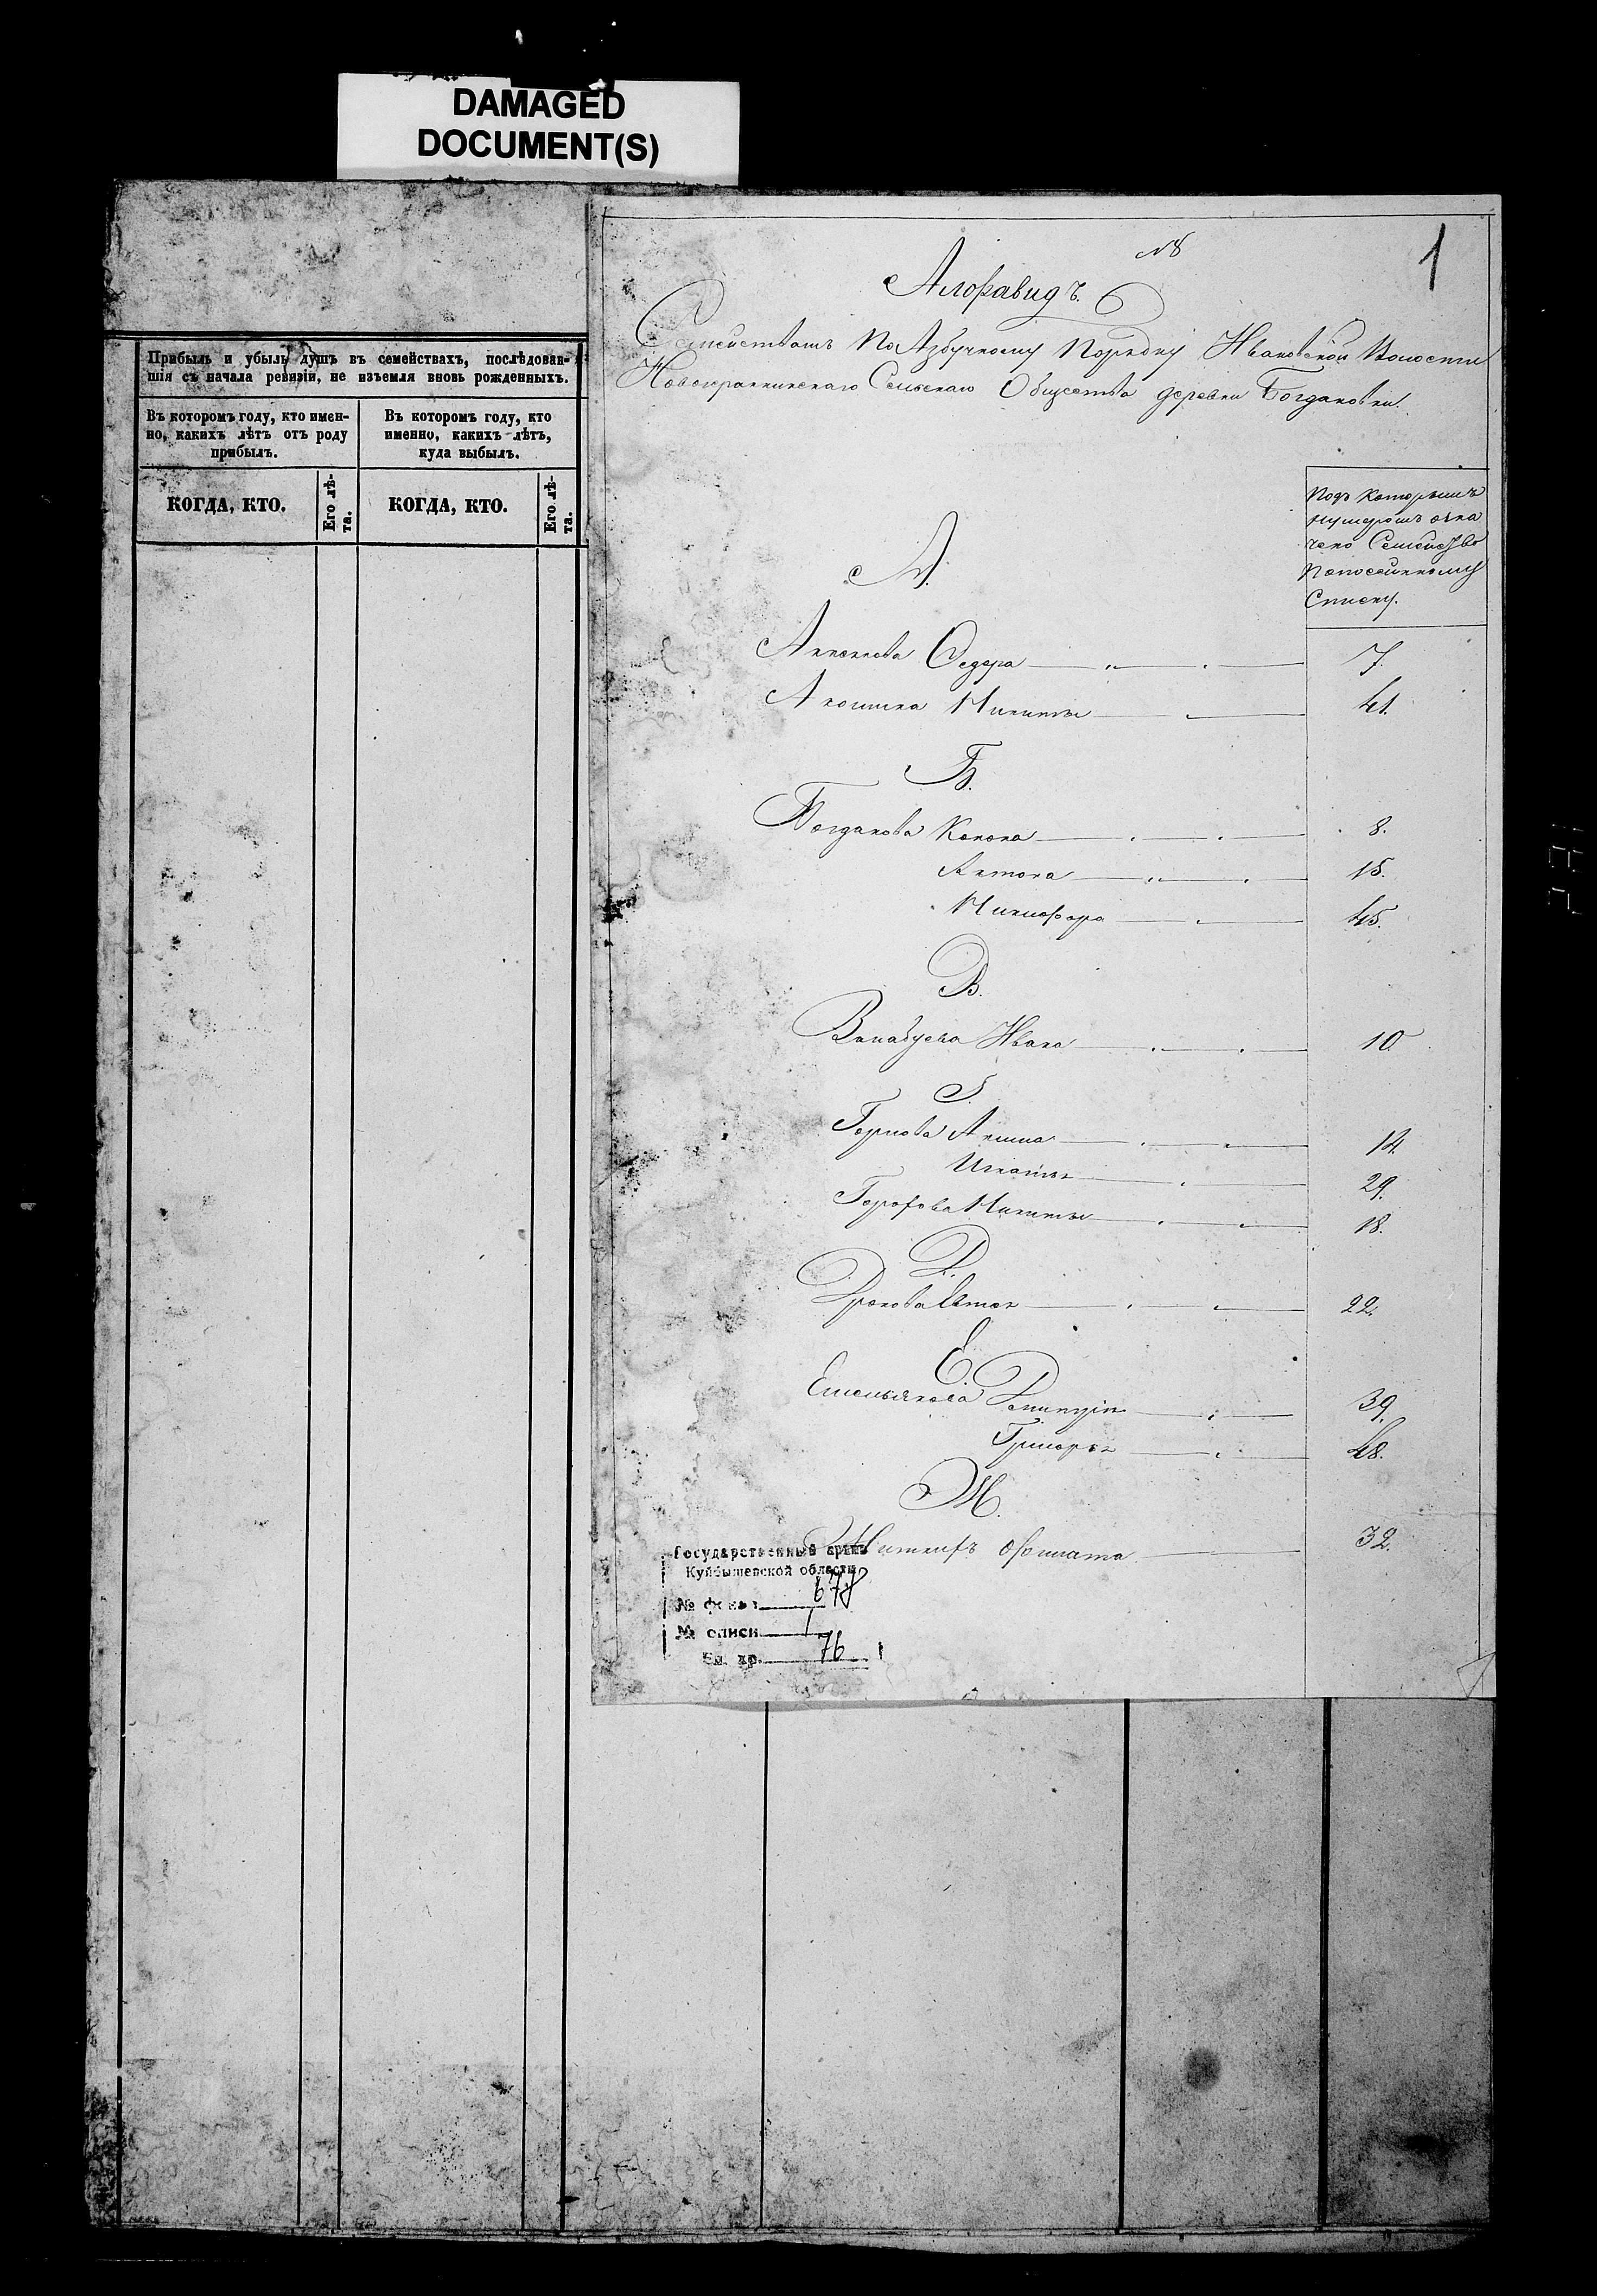 DAMAGED
DOCUMENT(S)
Прибыль и убыль душъ въ семействахъ, послѣдован-
шія съ начала ревизіи, не изъемля вновь рожденныхъ.
Въ которомъ году, кто имен-
но, какихъ лѣтъ отъ роду
прибылъ.
Его лѣ-
та.
КОГДА, КТО.
Въ которомъ году, кто
именно, какихъ лѣтъ,
куда выбылъ.
Его лѣ-
та.
КОГДА, КТО.
1
№
Алфавидъ
Семействамъ По Азбучному Порядку Ивановской Волости
Сельскаго Общества деревни Богдановки.
Подъ которымъ
нумеромъ озна
чено Семейство
Попосемейному
Списку.
А.
Федора 7.
Никиты 41.
Б.
Богданова Конона 8.
Антона 15.
Никифора 45.
В.
Ивана 10
Г.
Горнова Акима 14.
Игнатья 29.
Никиты 18.
Д.
22.
Е.
Емельянова 39.
Григорья 48.
Ж.
Филата 32.
Государственный архив
Куйбышевской области
№ фонда 678
№ описи 1
Ед. хр. 76